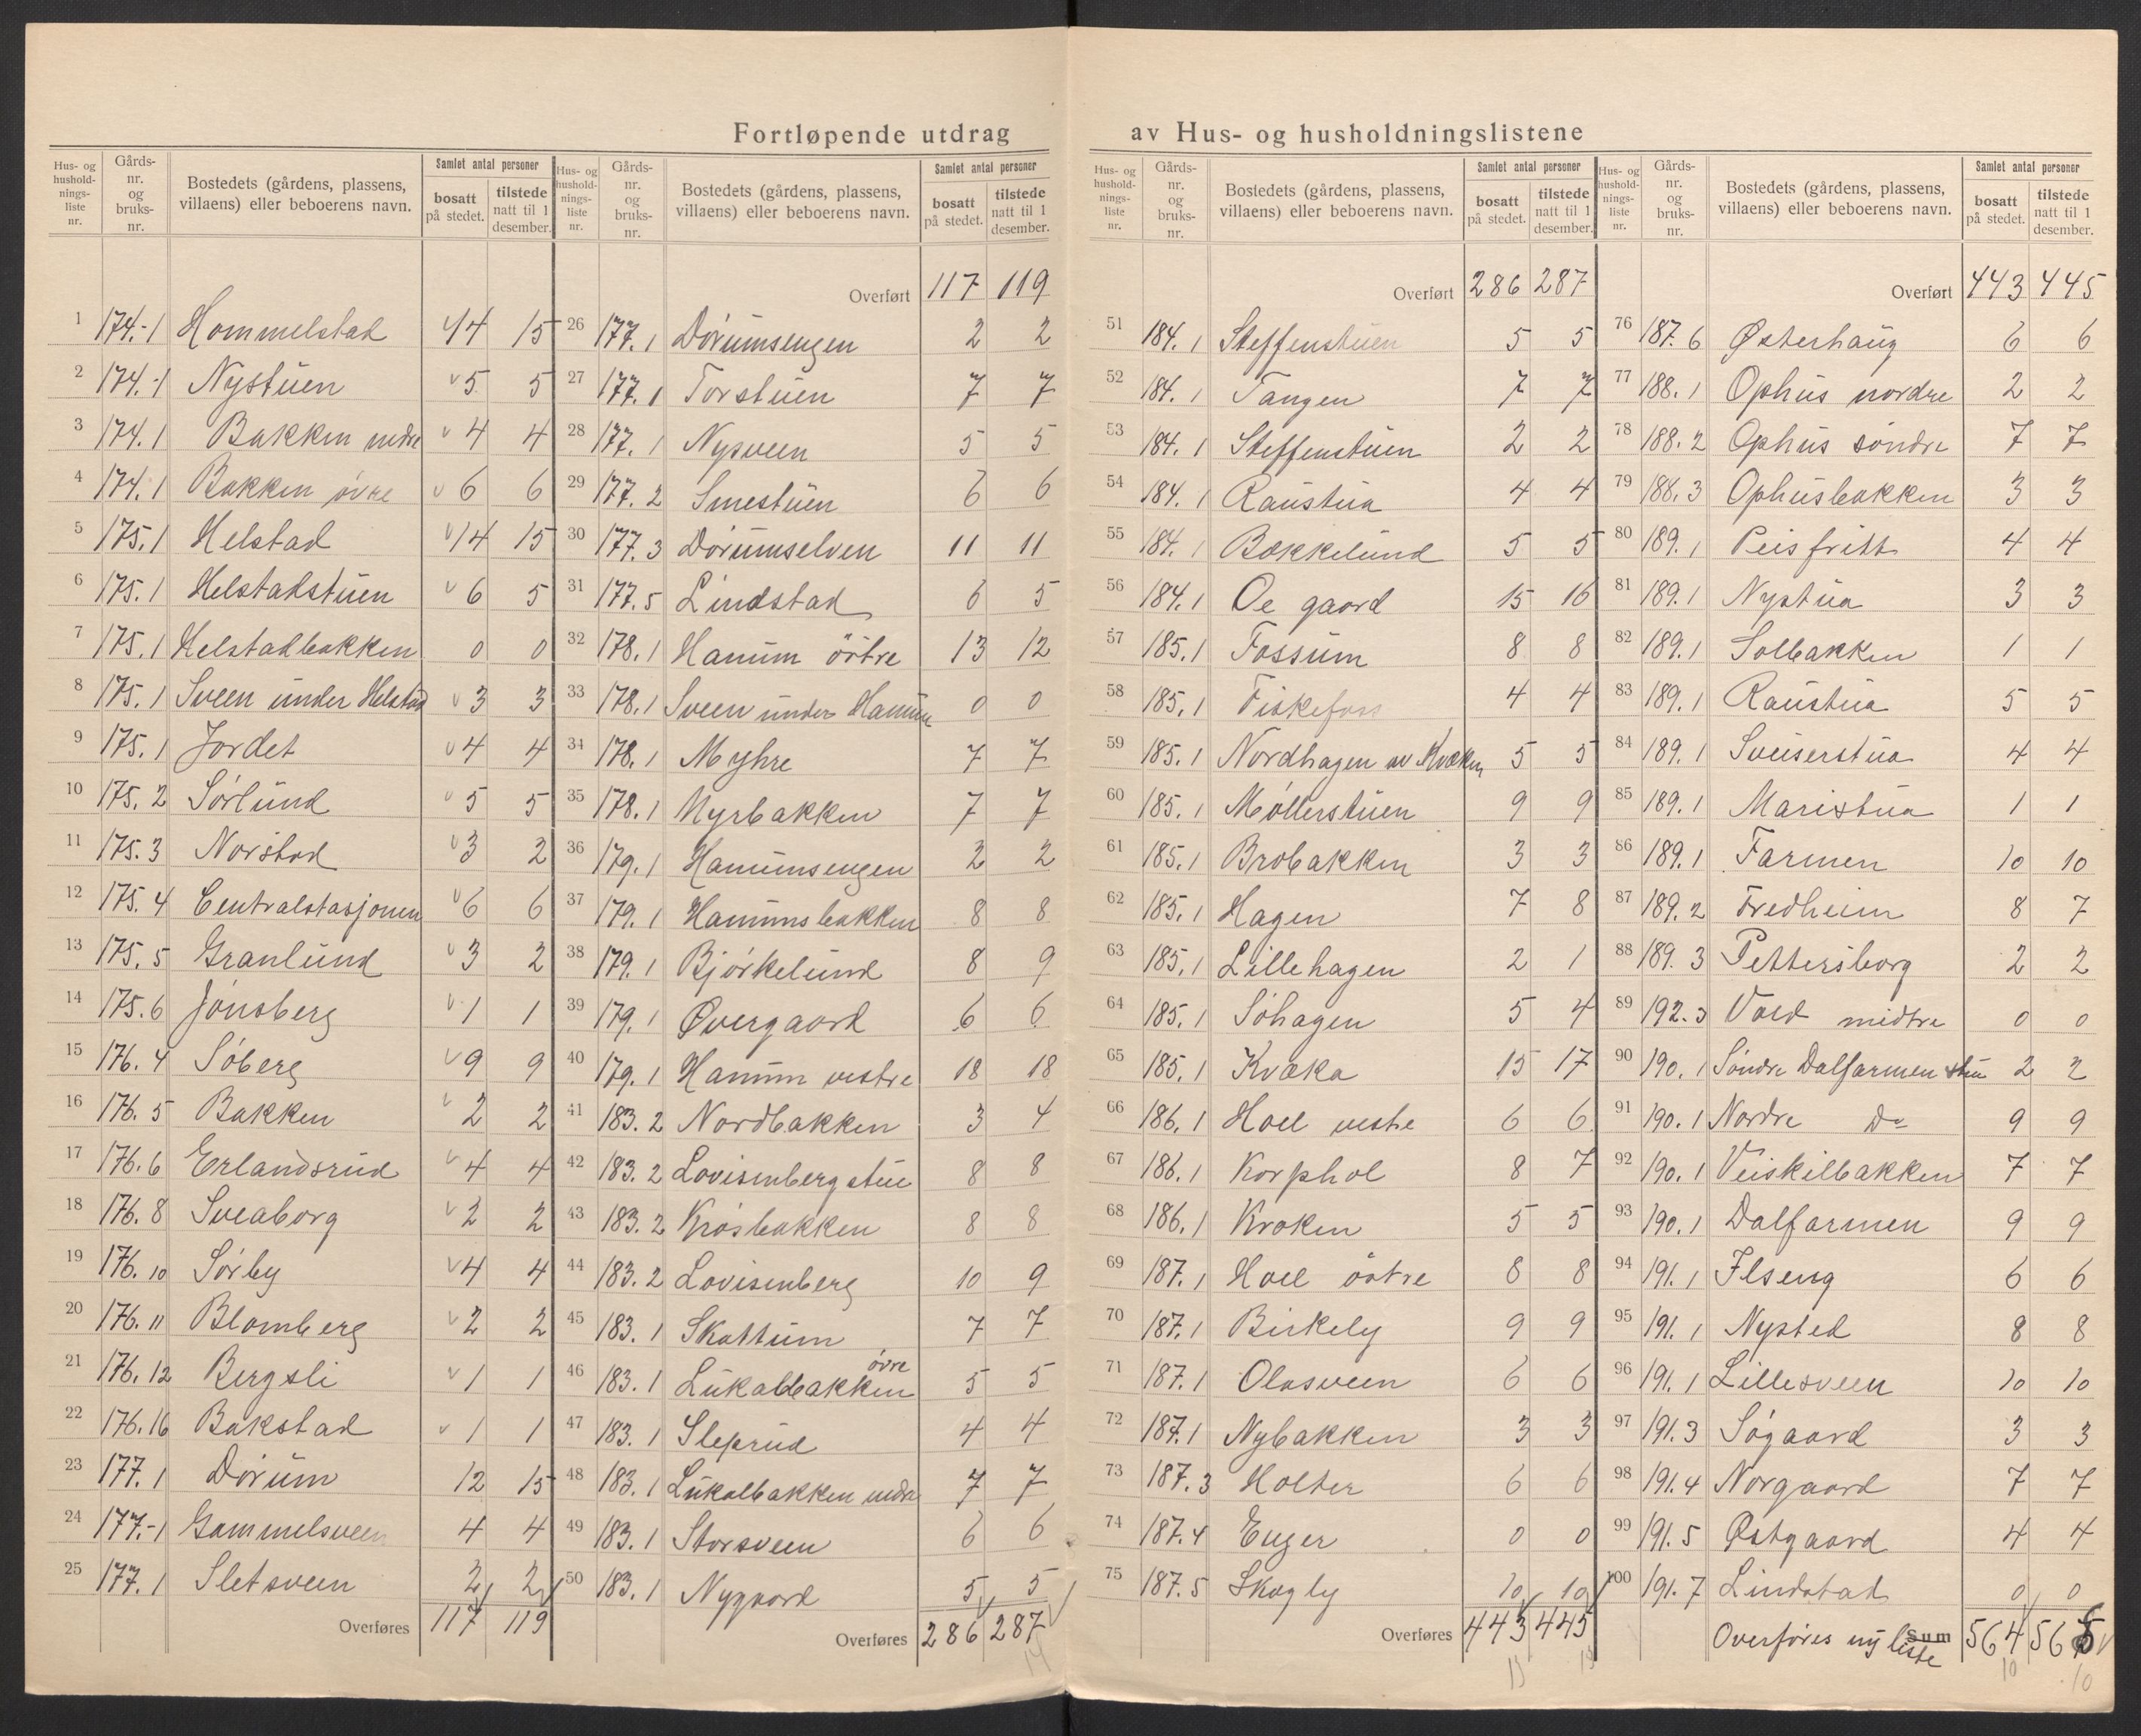 Fortløpende utdrag av Hus- og husholdningslistene
Hus- og husholdningsliste nr. | Gårdsnr. og bruksnr. | Bostedets (gårdens, plassens, villaens) eller beboerens navn. | Samlet antal personer bosatt på stedet. | tilstede natt til 1 desember.
1 174.-1 Hommelstad 14 15
2 174.-1 Nystuen 5 5
3 174.1 Bakken nedre 4 4
4 174.1 Bakken øvre 6 6
5 175.1 Helstad 14 15
6 175.1 Helstadstuen 6 5
7 175.1 Helstadbakken 0 0
8 175.1 Sveen under Helstad 3 3
9 175.1 Jordet 4 4
10 175.2 Sörlund 5 5
11 175.3 Norstad 3 2
12 175.4 Centralstasjonen 6 6
13 175.5 Granlund 3 2
14 175.6 Jönsberg 1 1
15 176.4 Söberg 9 9
16 176.5 Bakken 2 2
17 176.6 Erlandsrud 4 4
18 176.8 Sveaborg 2 2
19 176.10 Sörby 4 4
20 176.11 Blomberg 2 2
21 176.12 Bergsli 1 1
22 176.16 Bakstad 1 1
23 177.1 Dörum 12 15
24 177.-1 Gammelsveen 4 4
25 177.1 Sletsveen 2 2
Overføres 117 119
Hus- og husholdningsliste nr. | Gårdsnr. og bruksnr. | Bostedets (gårdens, plassens, villaens) eller beboerens navn. | Samlet antal personer bosatt på stedet. | tilstede natt til 1 desember.
Overført 117 119
26 177.1 Dörumsengen 2 2
27 177.1 Torstuen 7 7
28 177.1 Nysveen 5 5
29 177.2 Smestuen 6 6
30 177.3 Dörumselven 11 11
31 177.5 Lindstad 6 5
32 178.1 Hanum östre 13 12
33 178.1 Sveen under Hanum 0 0
34 178.1 Myhre 7 7
35 178.1 Myrbakken 7 7
36 179.1 Hanumsengen 2 2
37 179.1 Hanumsbakken 8 8
38 179.1 Björkelund 8 9
39 179.1 Øvergaard 6 6
40 179.1 Hanum vestre 18 18
41 183.2 Nordbakken 3 4
42 183.2 Lovisenbergstue 8 8
43 183.2 Krösbakken 8 8
44 183.2 Lovisenberg 10 9
45 183.1 Skattum 7 7
46 183.1 Lukalbakken övre 5 5
47 183.1 Sleprud 4 4
48 183.1 Lukalbakken nedre 7 7
49 183.1 Storsveen 6 6
50 183.1 Nygaard 5 5
Overføres 286 287
Hus- og husholdningsliste nr. | Gårdsnr. og bruksnr. | Bostedets (gårdens, plassens, villaens) eller beboerens navn. | Samlet antal personer bosatt på stedet. | tilstede natt til 1 desember.
Overført 286 287
51 184.1 Steffenstuen 5 5
52 184.1 Tangen 7 7
53 184.1 Steffenstuen 2 2
54 184.1 Raustua 4 4
55 184.1 Bækkelund 5 5
56 184.1 Oe gaard 15 16
57 185.1 Fossum 8 8
58 185.1 Fiskefoss 4 4
59 185.1 Nordhagen av Kvæken 5 5
60 185.1 Möllerstuen 9 9
61 185.1 Brobakken 3 3
62 185.1 Hagen 7 8
63 185.1 Lillehagen 2 1
64 185.1 Söhagen 5 4
65 185.1 Kvæka 15 17
66 186.1 Hoel vestre 6 6
67 186.1 Korphol 8 7
68 186.1 Kroken 5 5
69 187.1 Hoel östre 8 8
70 187.1 Birkely 9 9
71 187.1 Olasveen 6 6
72 187.1 Nybakken 3 3
73 187.3 Holter 6 6
74 187.4 Enger 0 0
75 187.5 Skogly 10 10
Overføres 443 445
Hus- og husholdningsliste nr. | Gårdsnr. og bruksnr. | Bostedets (gårdens, plassens, villaens) eller beboerens navn. | Samlet antal personer bosatt på stedet. | tilstede natt til 1 desember.
Overført 443 445
76 187.6 Østerhaug 6 6
77 188.1 Ophus nordre 2 2
78 188.2 Ophus söndre 7 7
79 188.3 Ophusbakken 3 3
80 189.1 Peisfritt 4 4
81 189.1 Nystua 3 3
82 189.1 Solbakken 1 1
83 189.1 Raustua 5 5
84 189.1 Sveiserstua 4 4
85 189.1 Maristua 1 1
86 189.1 Farmen 10 10
87 189.2 Fredheim 8 7
88 189.3 Pettersborg 2 2
89 192.3 Vold midtre 0 0
90 190.1 Söndre Dalfarmen stu 2 2
91 190.1 Nordre Do 9 9
92 190.1 Veiskilbakken 7 7
93 190.1 Dalfarmen 9 9
94 191.1 Ilseng 6 6
95 191.1 Nysted 8 8
96 191.1 Lillesveen 10 10
97 191.3 Søgaard 3 3
98 191.4 Norgaard 7 7
99 191.5 Østgaard 4 4
100 191.7 Lindstad 0 0
Overföres ny liste Sum 564 565